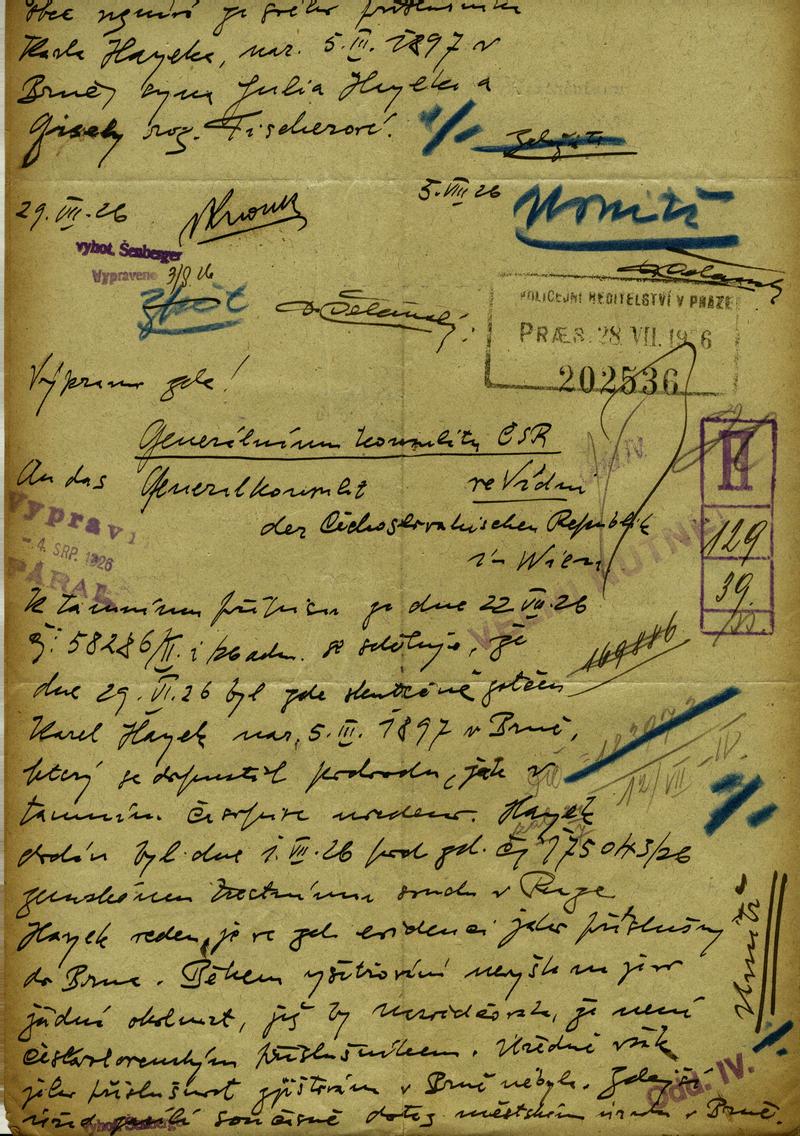 obce
Karla Hayeka, nar. 5. III. 1897 v
Brně, syna Julia Hayeka a
Gisely roz. Fischerové.
29. VII. 26
5. VIII 26
vyhot. Šenberger
Vypraveno 3/8 26
POLICEJNÍ ŘEDITELSTVÍ V PRAZE
PRÆS. 28. VII. 1926
202536
Vypraviti zde!
Generálnímu konsulátu ČSR
ve Vídni
An das Generalkonsulat
der Čechoslovakischen Republik
in Wien
Vypravil
- 4. SRP. 1926
PÁRAL
II
129
39
K tamnímu přípisu ze dne 22 VII 26
58286/II. i/26 adm. se sděluje, že
169886
dne 29. VI. 26 byl zde skutečně zatčen
Karel Hayek nar. 5. III. 1897 v Brně,
který se dopustil podvodu, jak v
tamním uvedeno. Hayek
12/VII - IV
dodán byl dne 1. VII. 26 pod zd. čj 175043/26
zemskému trestnímu soudu v Praze
Hayek veden je ve zdejší evidenci jako příslušný
do Brna. Během vyšetřování nevyšla na jevo
žádná okolnost, jež by nasvědčovala, že není
československým příslušníkem. Úředně však
jeho příslušnost zjišťována v Brně nebyla. Zdejší
úřad současně dotaz městskému úřadu v Brně.
Odd. IV.
vyhot. Šenberger